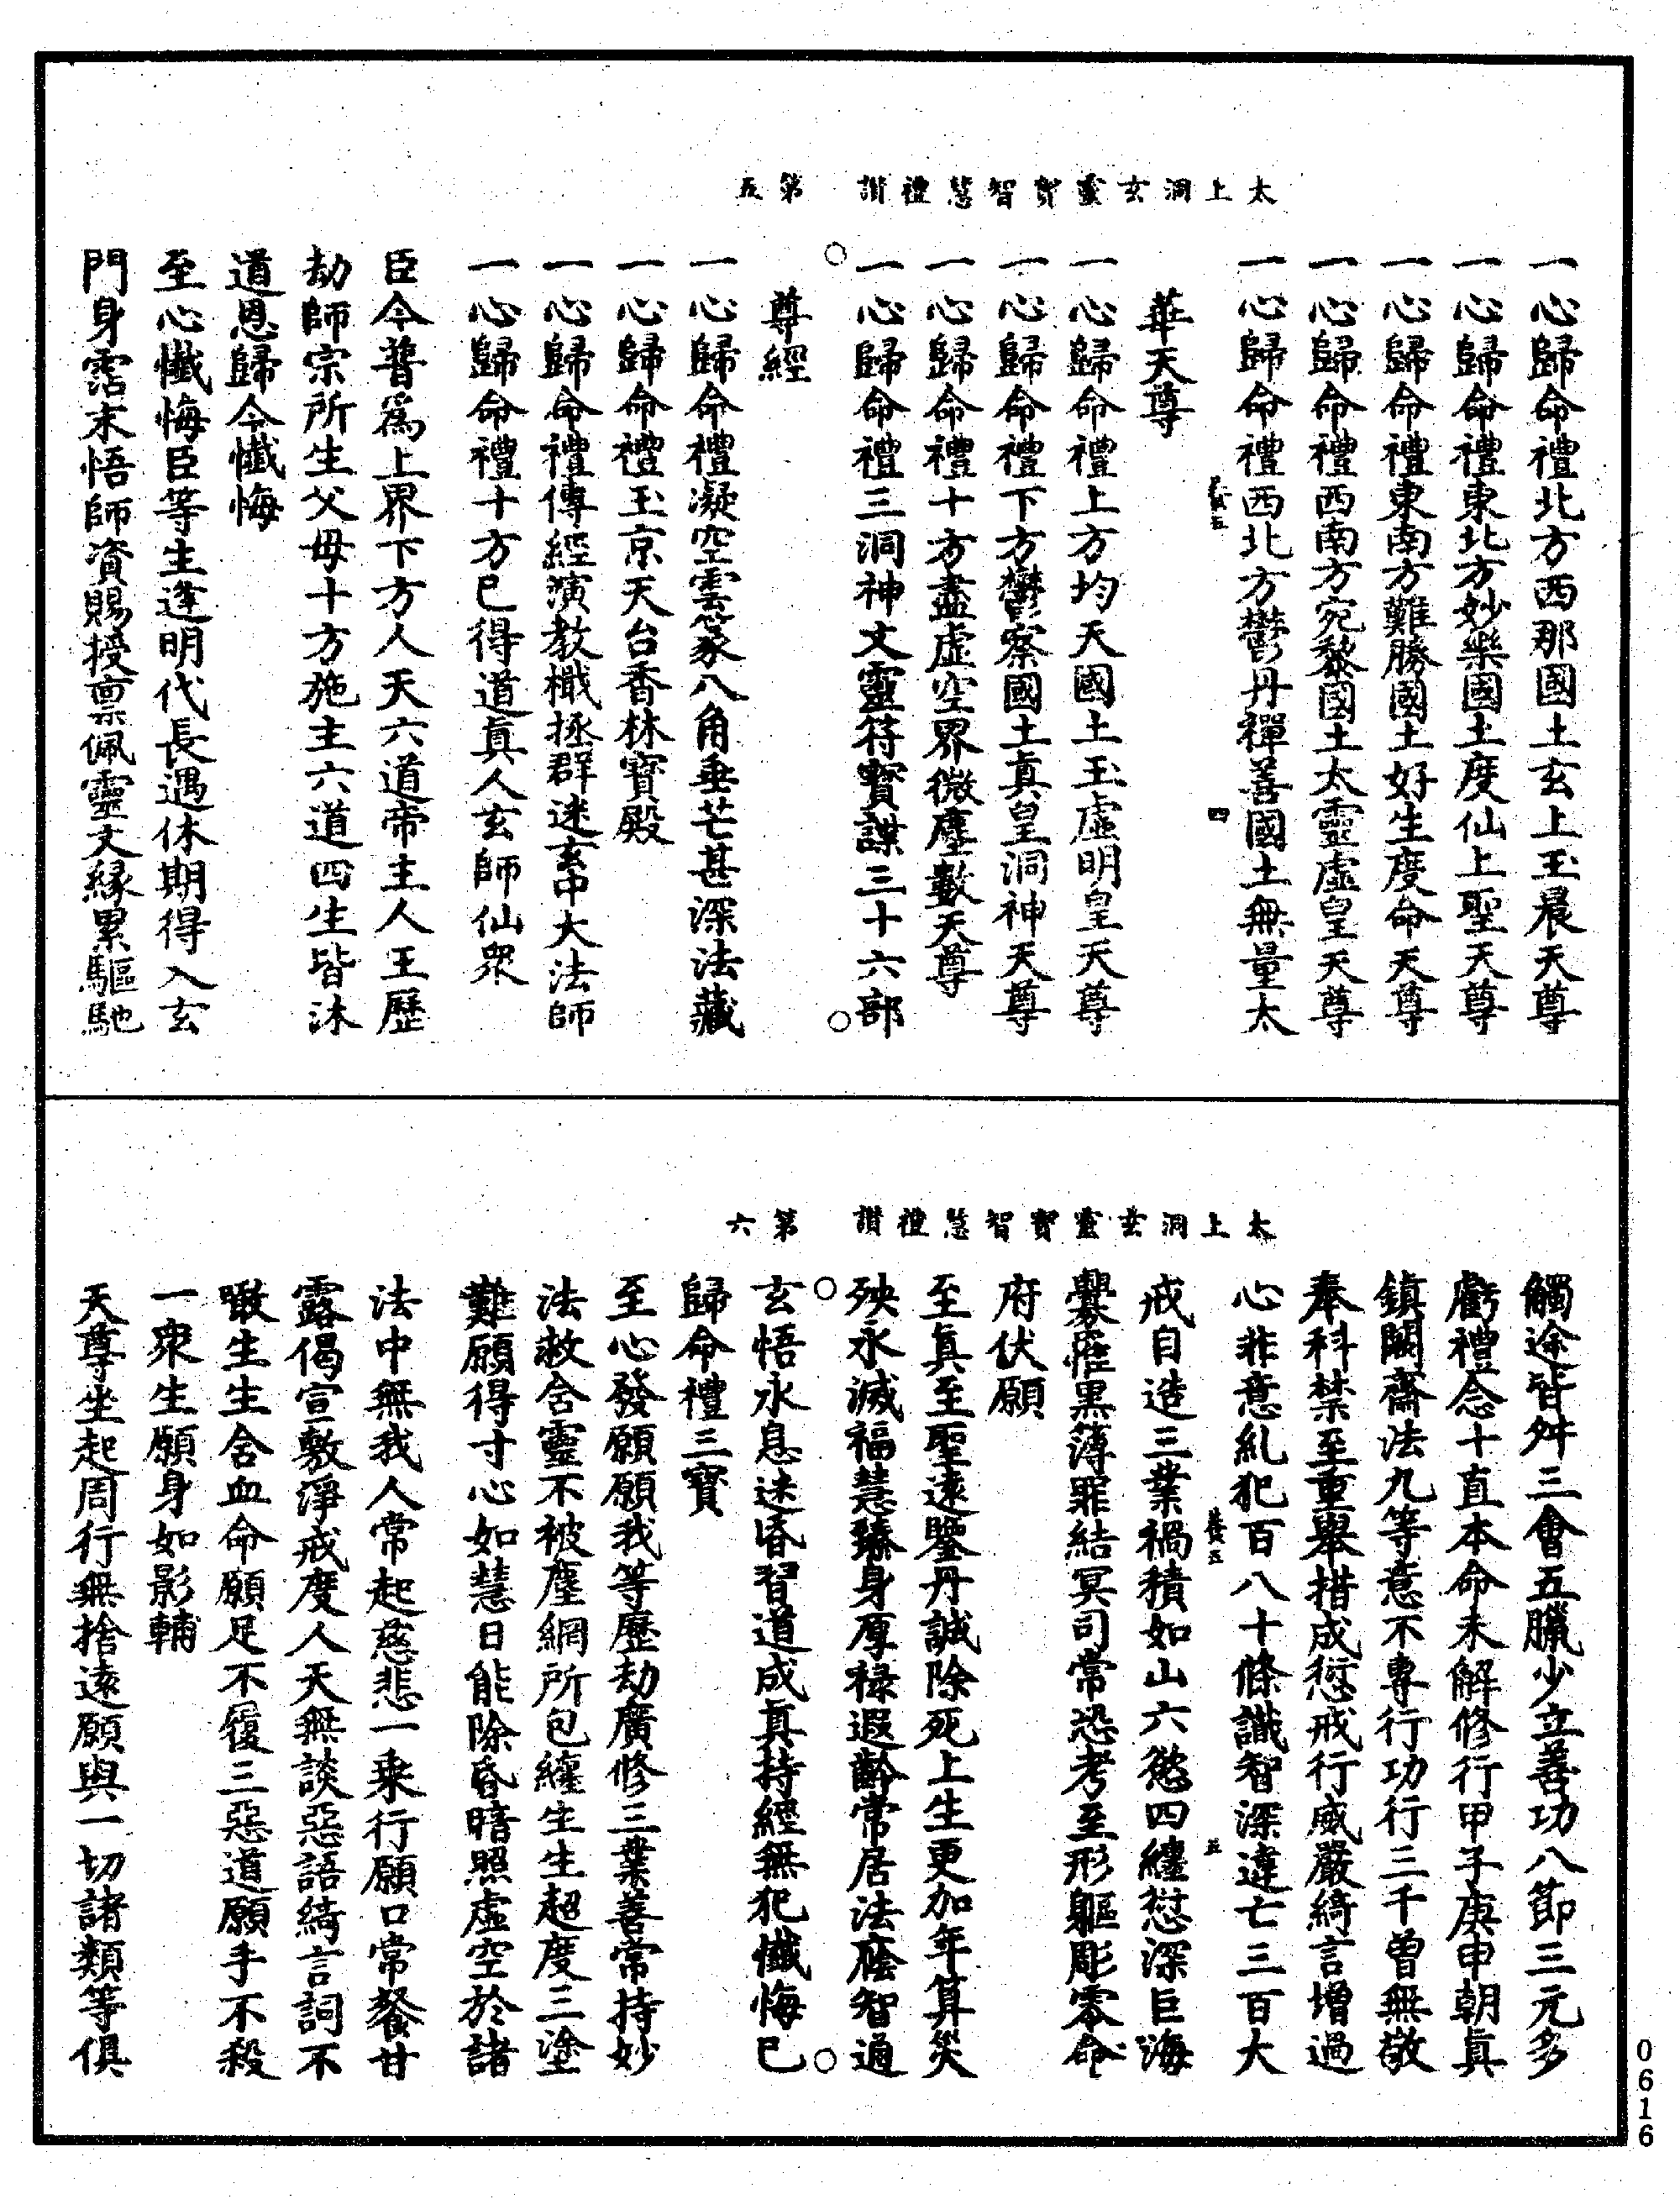 太上洞玄靈寳智慧禮讃　第五
一心歸命禮北方西那國土玄上玉晨天尊
一心歸命禮東北方妙樂國土度仙上聖天尊
一心歸命禮東南方難勝國土好生度命天尊
一心歸命禮西南方宛黎國土太靈虛皇天尊
一心歸命禮西北方鬱丹禪善國土無量太
四
華天尊
一心歸命禮上方均天國土玉虛明皇天尊
一心歸命禮下方鬱察國土真皇洞神天尊
一心歸命禮十方盡虛空界微塵數天尊
一心歸命禮三洞神文靈符寶諜三十六部
尊經
一心歸命禮凝空雲篆八角垂芒甚深法藏
一心歸命禮玉京天台香林寶殿
一心歸命禮傳經演教檝拯群迷玄中大法師
一心歸命禮十方已得道真人玄師仙衆
臣今普爲上界下方人天六道帝主人王歷
劫師宗所生父母十方施主六道四生皆沐
道恩歸今懺悔
至心懺悔臣等生逢明代長遇休期得入玄
門身霑末悟師資賜授禀佩靈文縁累驅馳
太上洞玄靈寳智慧禮讃　第六
觸途皆舛三會五臘少立善功八節三元多
虧禮念十直本命未解修行甲子庚申朝真
鎮闕齋法九等意不專行功行三千曾無敬
奉科禁至重舉措成愆戒行威嚴綺言增過
心非意糺犯百八十條識智深違亡三百大
五
戒自造三業禍積如山六慾四纏愆深巨海
釁罹黑簿罪結冥司常恐考至形軀彫零命
府伏願
至真至聖遠鑒丹誠除死上生更加年算災
殃永滅福慧臻身厚祿遐齡常居法䕃智通
玄悟永息迷昏習道成真持經無犯懺悔已
歸命禮三寶
至心發願願我等歷劫廣修三業善常持妙
法救含靈不被塵網所包纏生生超度三塗
難願得寸心如慧日能除昏暗照虛空於諸
法中無我人常起慈悲一乘行願口常餐甘
露偈宣敷淨戒度人天無談惡語綺言詞不
噉生生含血命願足不履三惡道願手不殺
一衆生願身如影輔
天尊坐起周行無捨遠願與一切諸類等俱
0616